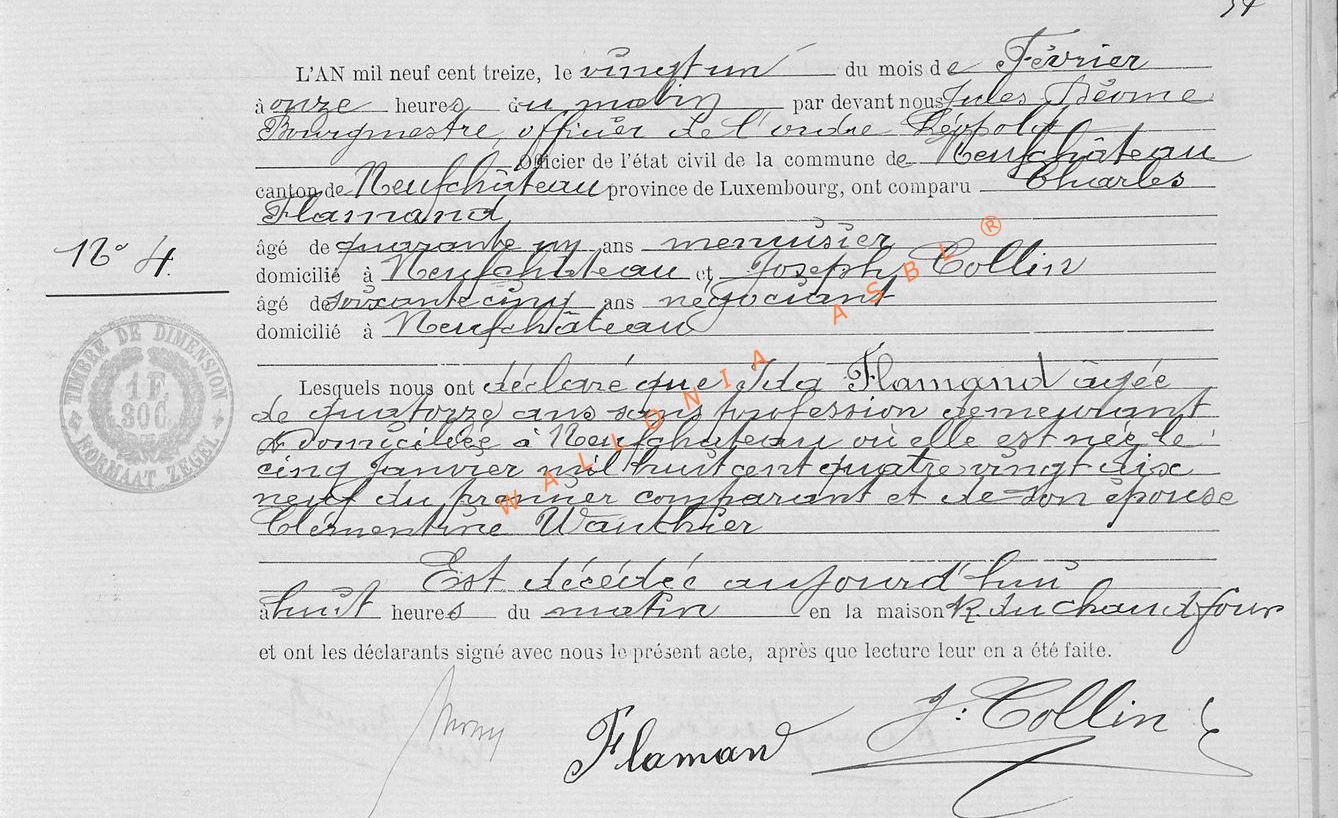 L'AN mil neuf cent treize, le vingt un du mois de Février
à onze heures du matin par devant nous Jules
Bourgmestre, officier de l'ordre Léopold
Officier de l'état civil de la commune de Neufchâteau
canton de Neufchâteau province de Luxembourg, ont comparu Charles
Flamand,
âgé de quarante un ans menuisier
N° 4.
domicilié à Neufchâteau et Joseph Collin
âgé de soixante cinq ans négociant
domicilié à Neufchâteau
TIMBRE DE DIMENSION
1 F.
30 C.
FORMAAT ZEGEL
Lesquels nous ont déclaré que Ida Flamand âgée
de quatorze ans sans profession demeurant
& domiciliée à Neufchateau où elle est née le
cinq Janvier mil huit cent quatre vingt dix
neuf du premier comparant et de son épouse
Clémentine Wauthier
Est décédée aujourd'hui
à huit heures du matin en la maison R. du chaud four
et ont les déclarants signé avec nous le présent acte, après que lecture leur en a été faite.
Flamand J. Collin
WALLONIA ASBL ®